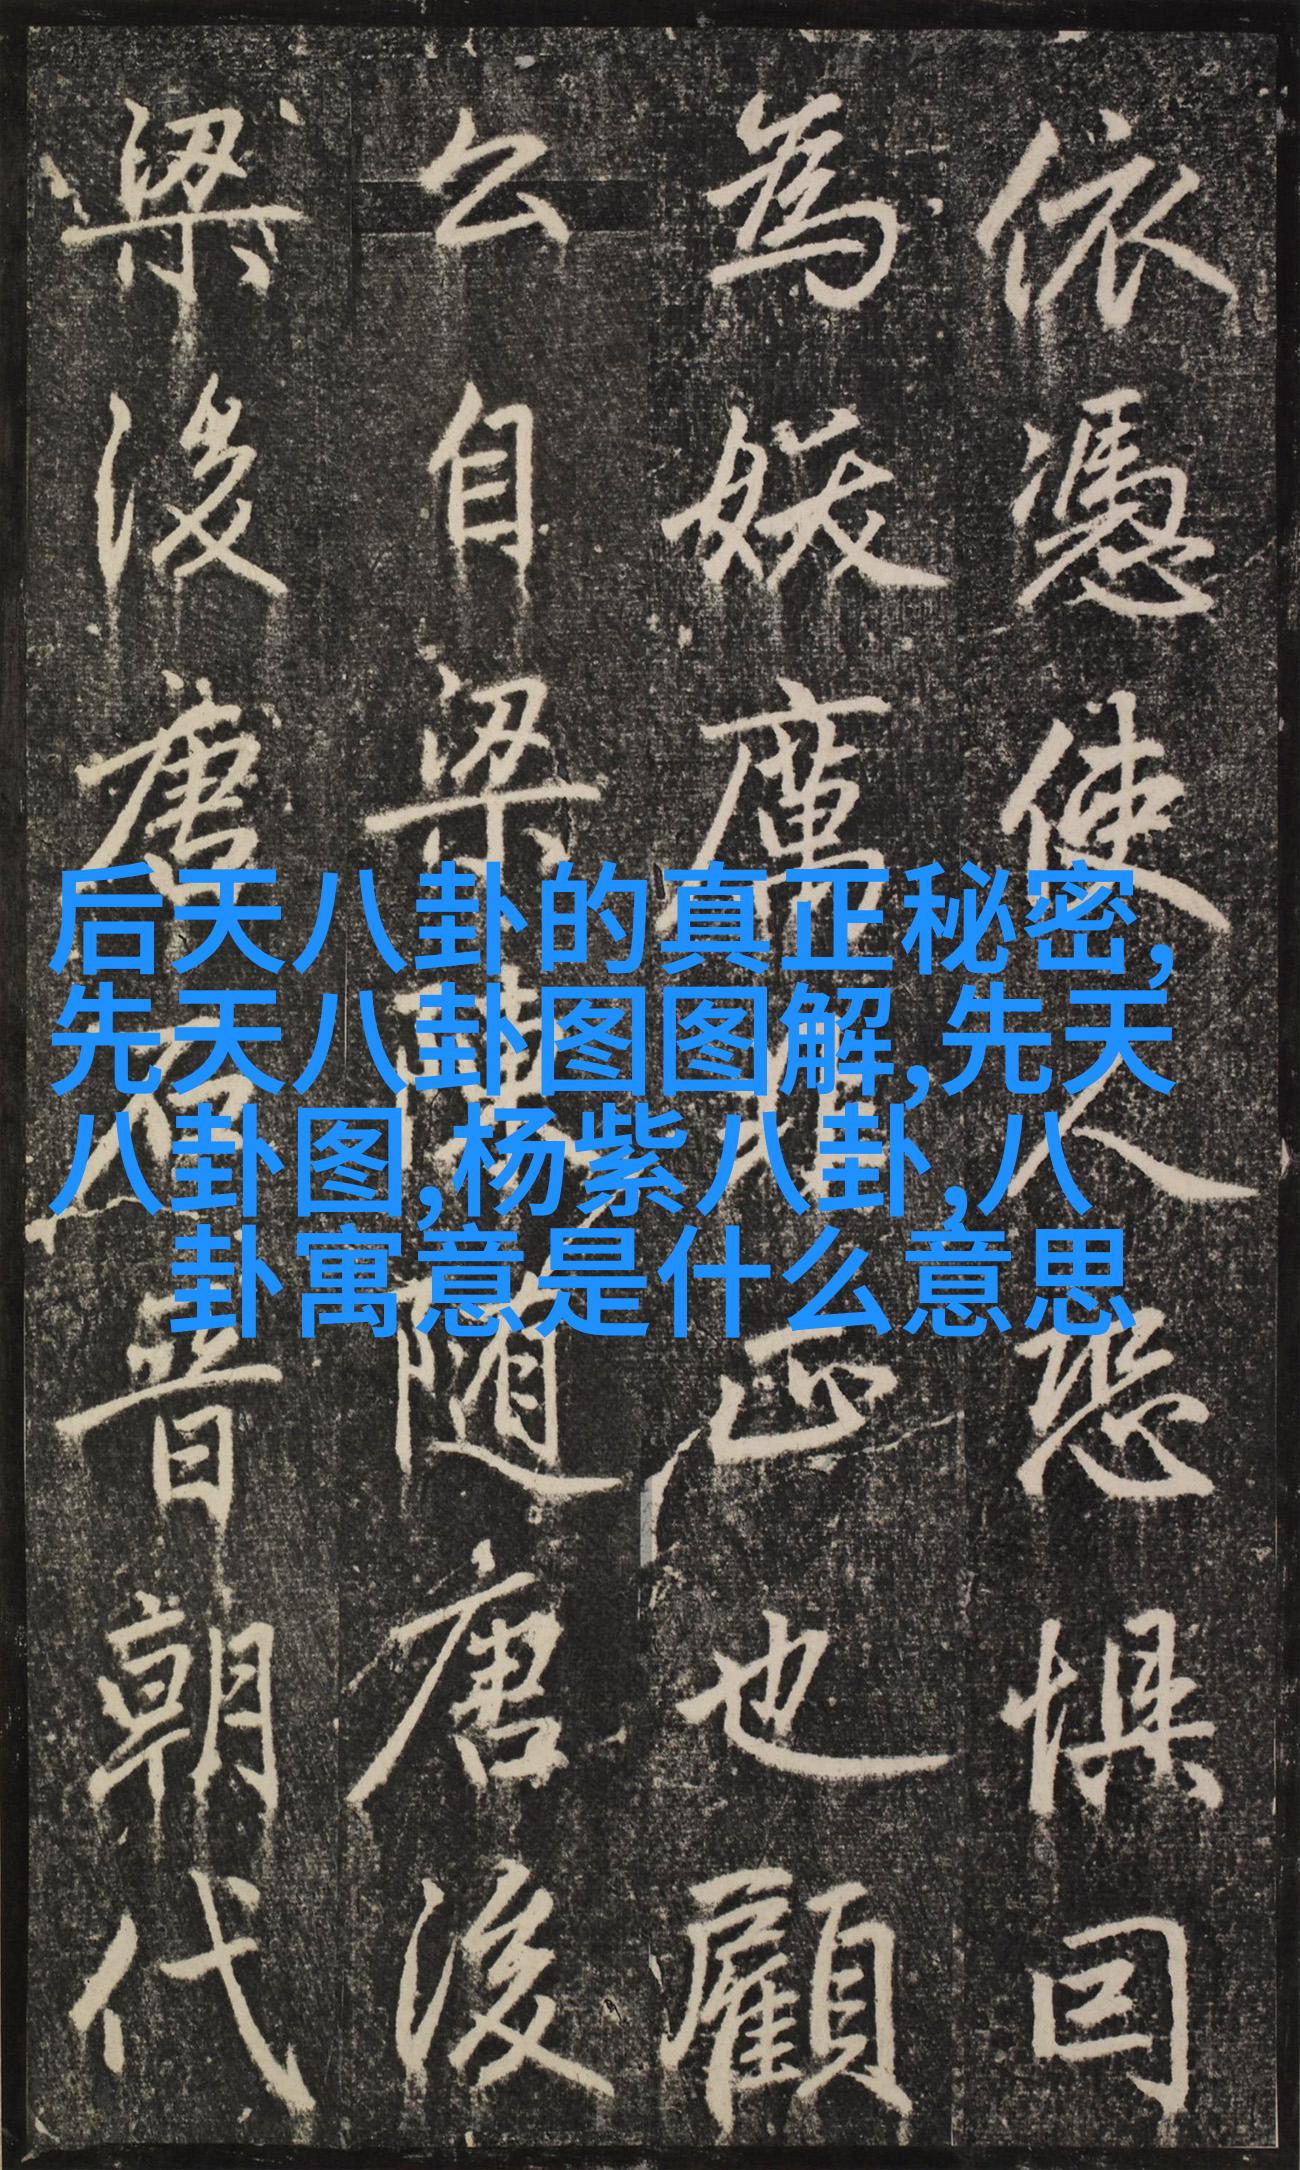 依憑使人恐惧
為妖厲正也顧
公自梁陳随唐後
梁後唐石晉朝代
后天八卦的真正秘密,
先天八卦图图解,先天
八卦图,杨紫八卦,八
卦寓意是什么意思